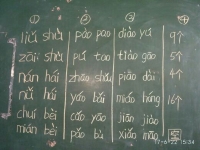 ① ② ③ ④
liǔ shù pào pao diào yú 9个
zāi shù pú tao tiào gāo 5个
nán hái zhāo shǒu piào dài 4个
nǚ hái yáo bǎi miáo hóng 16个
chuī bèi cǎo yào jiǎn jiǎo
mián bèi pǎo bù xiǎn
17-6-22 15:34